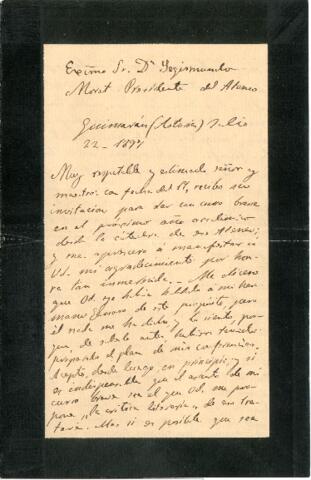 Excmo Sr. Dn Segismundo
Moret Presidente del Ateneo
Guimarán (Asturias) Julio
22-1897
Muy respetable y estimado señor y
maestro: con fecha del 17, recibo su
invitación para dar un curso breve
en el próximo año académico
desde la cátedra de ese Ateneo;
y me apresuro á manifestar á
Ud. mi agradecimiento por hon-
ra tan inmerecida. — Me dice
que Ud. ya había hablado á mi her-
mano Genaro de este propósito, pero
él nada me ha dicho, y lo siento, por-
que de saberlo antes, hubiera
preparado el plan de mis conferencias.
Acepto, desde luego, en principio, y si
es indispensable que el asunto de mi
curso breve sea el que Ud. me pro-
pone, "la crítica literaria", de eso tra-
taría. Mas si es posible que sea